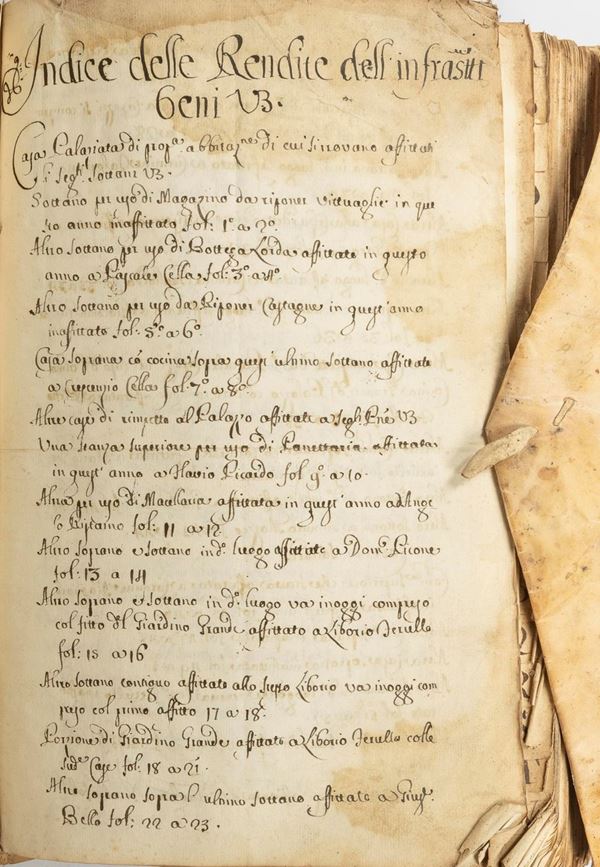 Indice delle Rendite dell' infras.tti
Beni V3.
Casa Palaziata di prop.a abbitaz.ne di cui si trovano affittati
li seg.ti sottani V3.
Sottano per uso di Magazino da riponer vittuaglie in que
sto anno inaffittato fol: 1.o a 2.o
Altro sottano per uso di Bottega Lorda affittato in questo
anno a Pascale Cella fol: 3.o a 4.o
Altro sottano per uso da Riponer Castagne in quest' anno
inafittato fol: 5.o a 6.o
Casa soprana co cocina sopra quest' ultimo sottano affittata
a Crescenzio Cella fol: 7.o a 8.o
Altre case di rimpetto al Palazzo affittate a segti. V3
Una stanza superiore per uso di Panettaria affittata
in quest' anno a Flavio Picardo fol 9.o a 10.
Altra per uso di affittata in quest' anno ad Ange
lo fol: 11 a 12
Altro soprano e sottano in d.o luogo affittato a Dom.co Picone
fol: 13 a 14
Altro soprano e sottano in d.o luogo va inoggi compreso
col fitto del Giardino Grande affittato a Liborio Ierullo
fol: 15 a 16
Altro sottano contiguo affittato allo stesso Liborio va inoggi com
preso col primo affitto 17 a 18.
Porzione di Giardino Grande affittato a Liborio Ierullo colle
sud.e Case fol: 18 a 21.
Altro soprano sopra l' ultimo sottano affittato a Gius.e
Bello fol: 22 a 23.